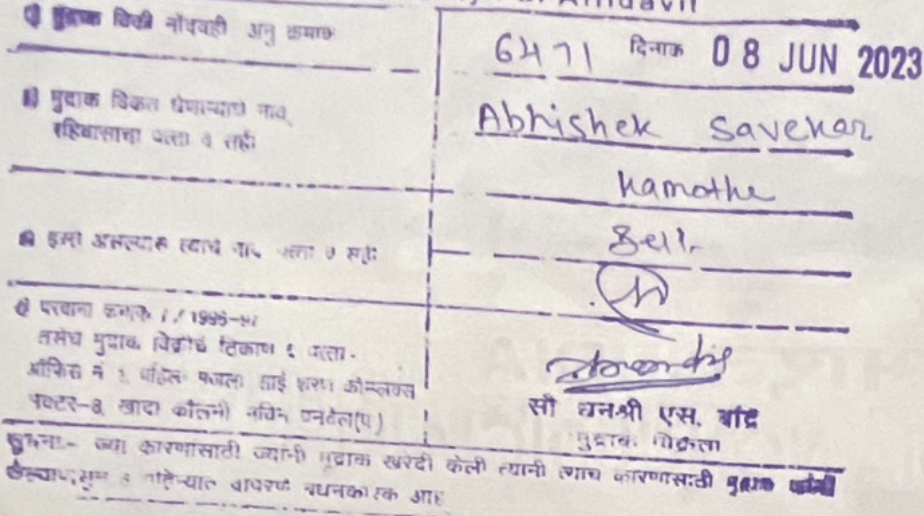 Affidavit
विक्री नोंदवही अनु क्रमांक
6471 दिनांक 08 JUN 2023
मुद्रांक विकत घेणाऱ्याचे नाव,
रहिवासाचा पत्ता व सही
Abhishek Savekar
Kamothe
Self
हस्ते असल्यास त्याचे नाव पत्ता व सही
परवाना क्रमांक 1/1995-
तसेच मुद्रांक विक्रीचे ठिकाण पत्ता.
ऑफिस नं 1 पहिला मजला साई शरण कॉम्प्लेक्स
सेक्टर-8 खांदा कॉलनी नविन पनवेल(प)
सौ धनश्री एस. बांद्रे
मुद्रांक विक्रेता
सूचना:- ज्या कारणांसाठी ज्यांनी मुद्रांक खरेदी केली त्यांनी त्याच कारणासाठी मुद्रांक
केल्यापासून 6 महिन्यात वापरणे बंधनकारक आहे